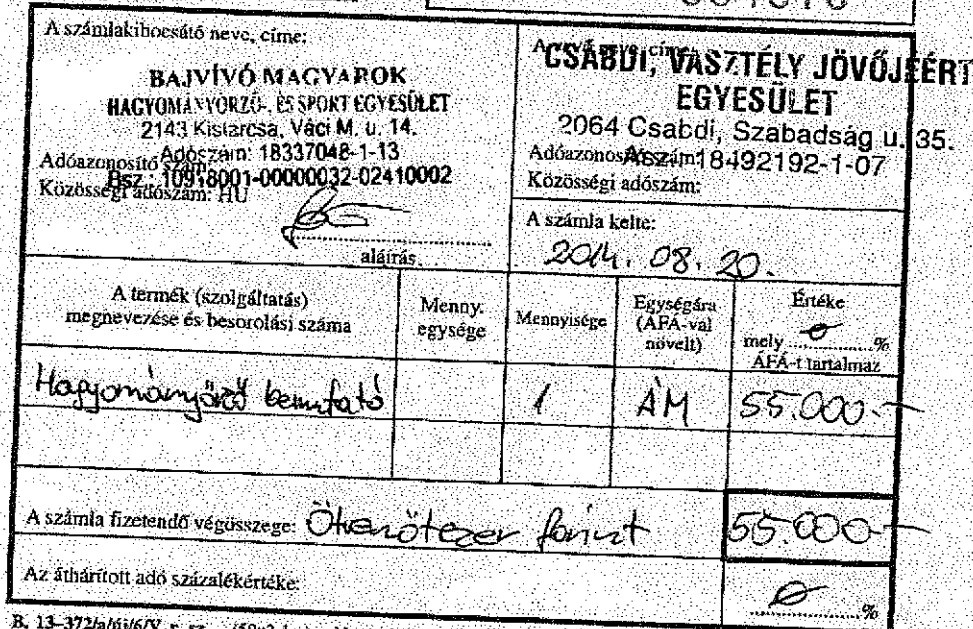 A számlakibocsátó neve, címe:
BAJVÍVÓ MAGYAROK
HAGYOMÁNYŐRZŐ-, ÉS SPORT EGYESÜLET
2143 Kistarcsa, Váci M. u. 14.
Adóazonosító szám:
Adószám: 18337048-1-13
Bsz.: 10918001-00000032-02410002
Közösségi adószám: HU
aláírás
CSABDI, VASZTÉLY JÖVŐJÉÉRT
EGYESÜLET
2064 Csabdi, Szabadság u. 35.
Adóazonosító szám:
Asz.: 18492192-1-07
Közösségi adószám:
A számla kelte:
2014. 08. 20.
A termék (szolgáltatás)
megnevezése és besorolási száma
Menny.
egysége
Mennyisége
Egységára
(ÁFÁ-val
növelt)
Értéke
mely 0 %
ÁFÁ-t tartalmaz
Hagyományőrző bemutató 1 ÁM 55.000.-
A számla fizetendő végösszege: Ötvenötezer forint 55.000-
Az áthárított adó százalékértéke: 0 %